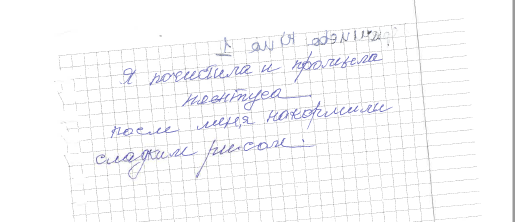 Я почистила и промыла
плинтуса.
после меня накормили
сладким рисом.